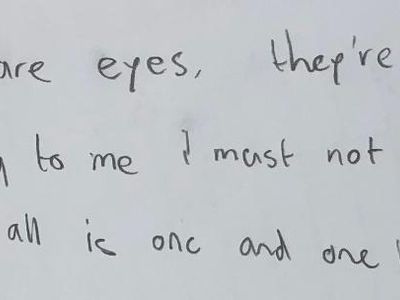 are eyes, they're
to me I must not
all is one and one